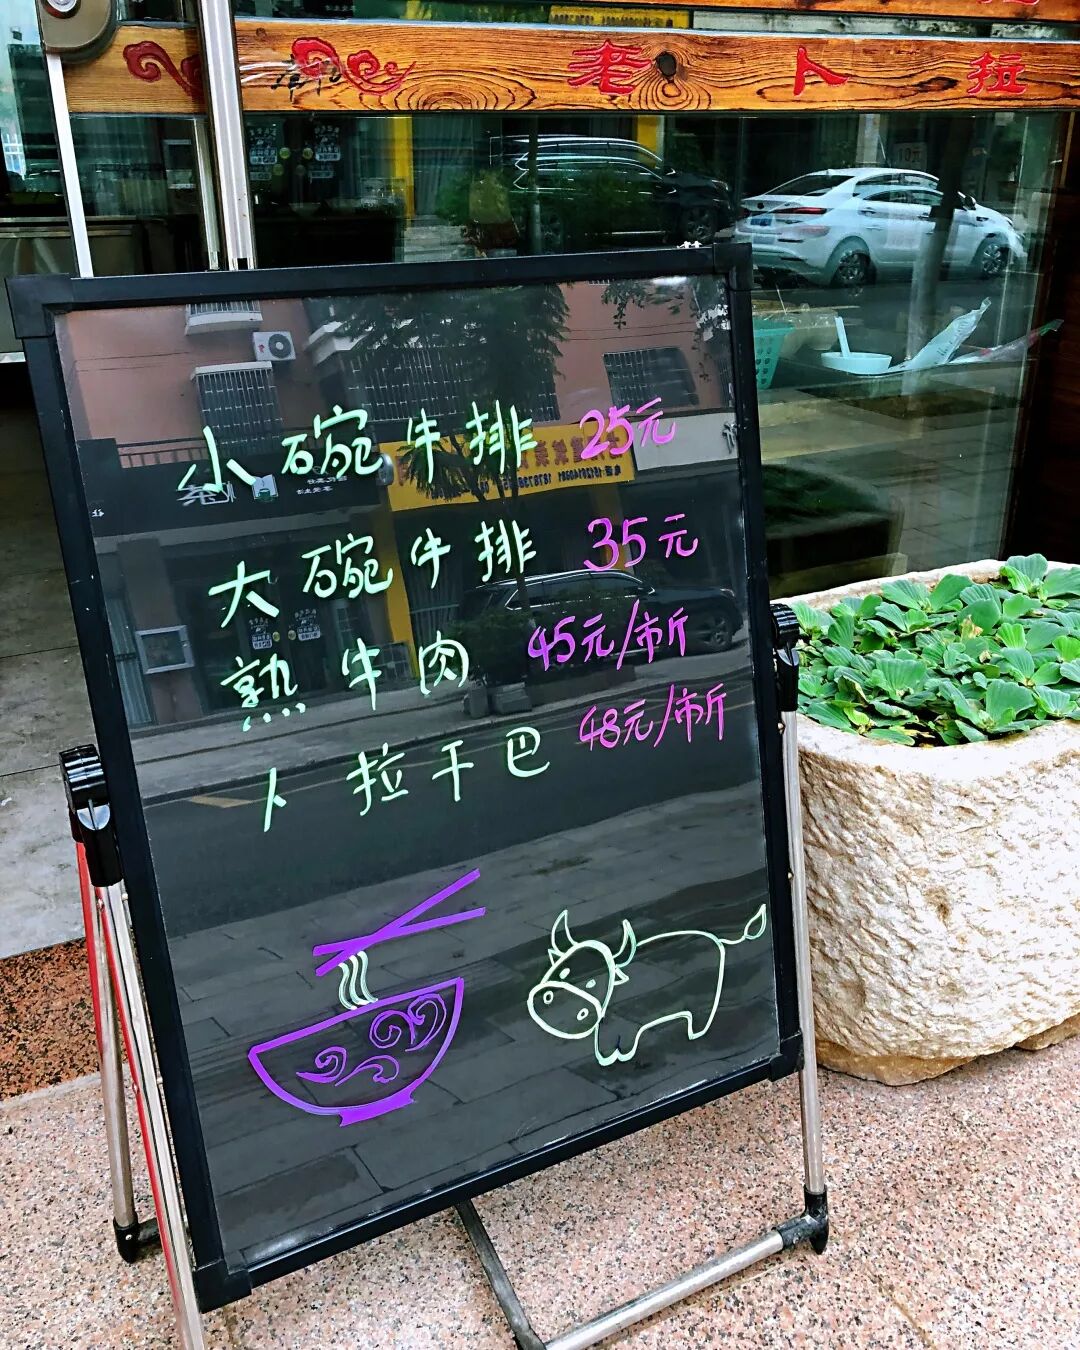 老卜拉
小碗牛排 25元
大碗牛排 35元
熟牛肉 45元/市斤
卜拉干巴 48元/市斤